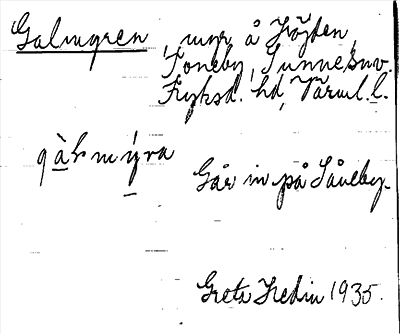 Galmyren, myr å Höjden,
Toneby, Sunne snv.
Fryksd. hd, Värml. l.
gàlmýra
Går in på Såneby.
Greta Hedin 1935.